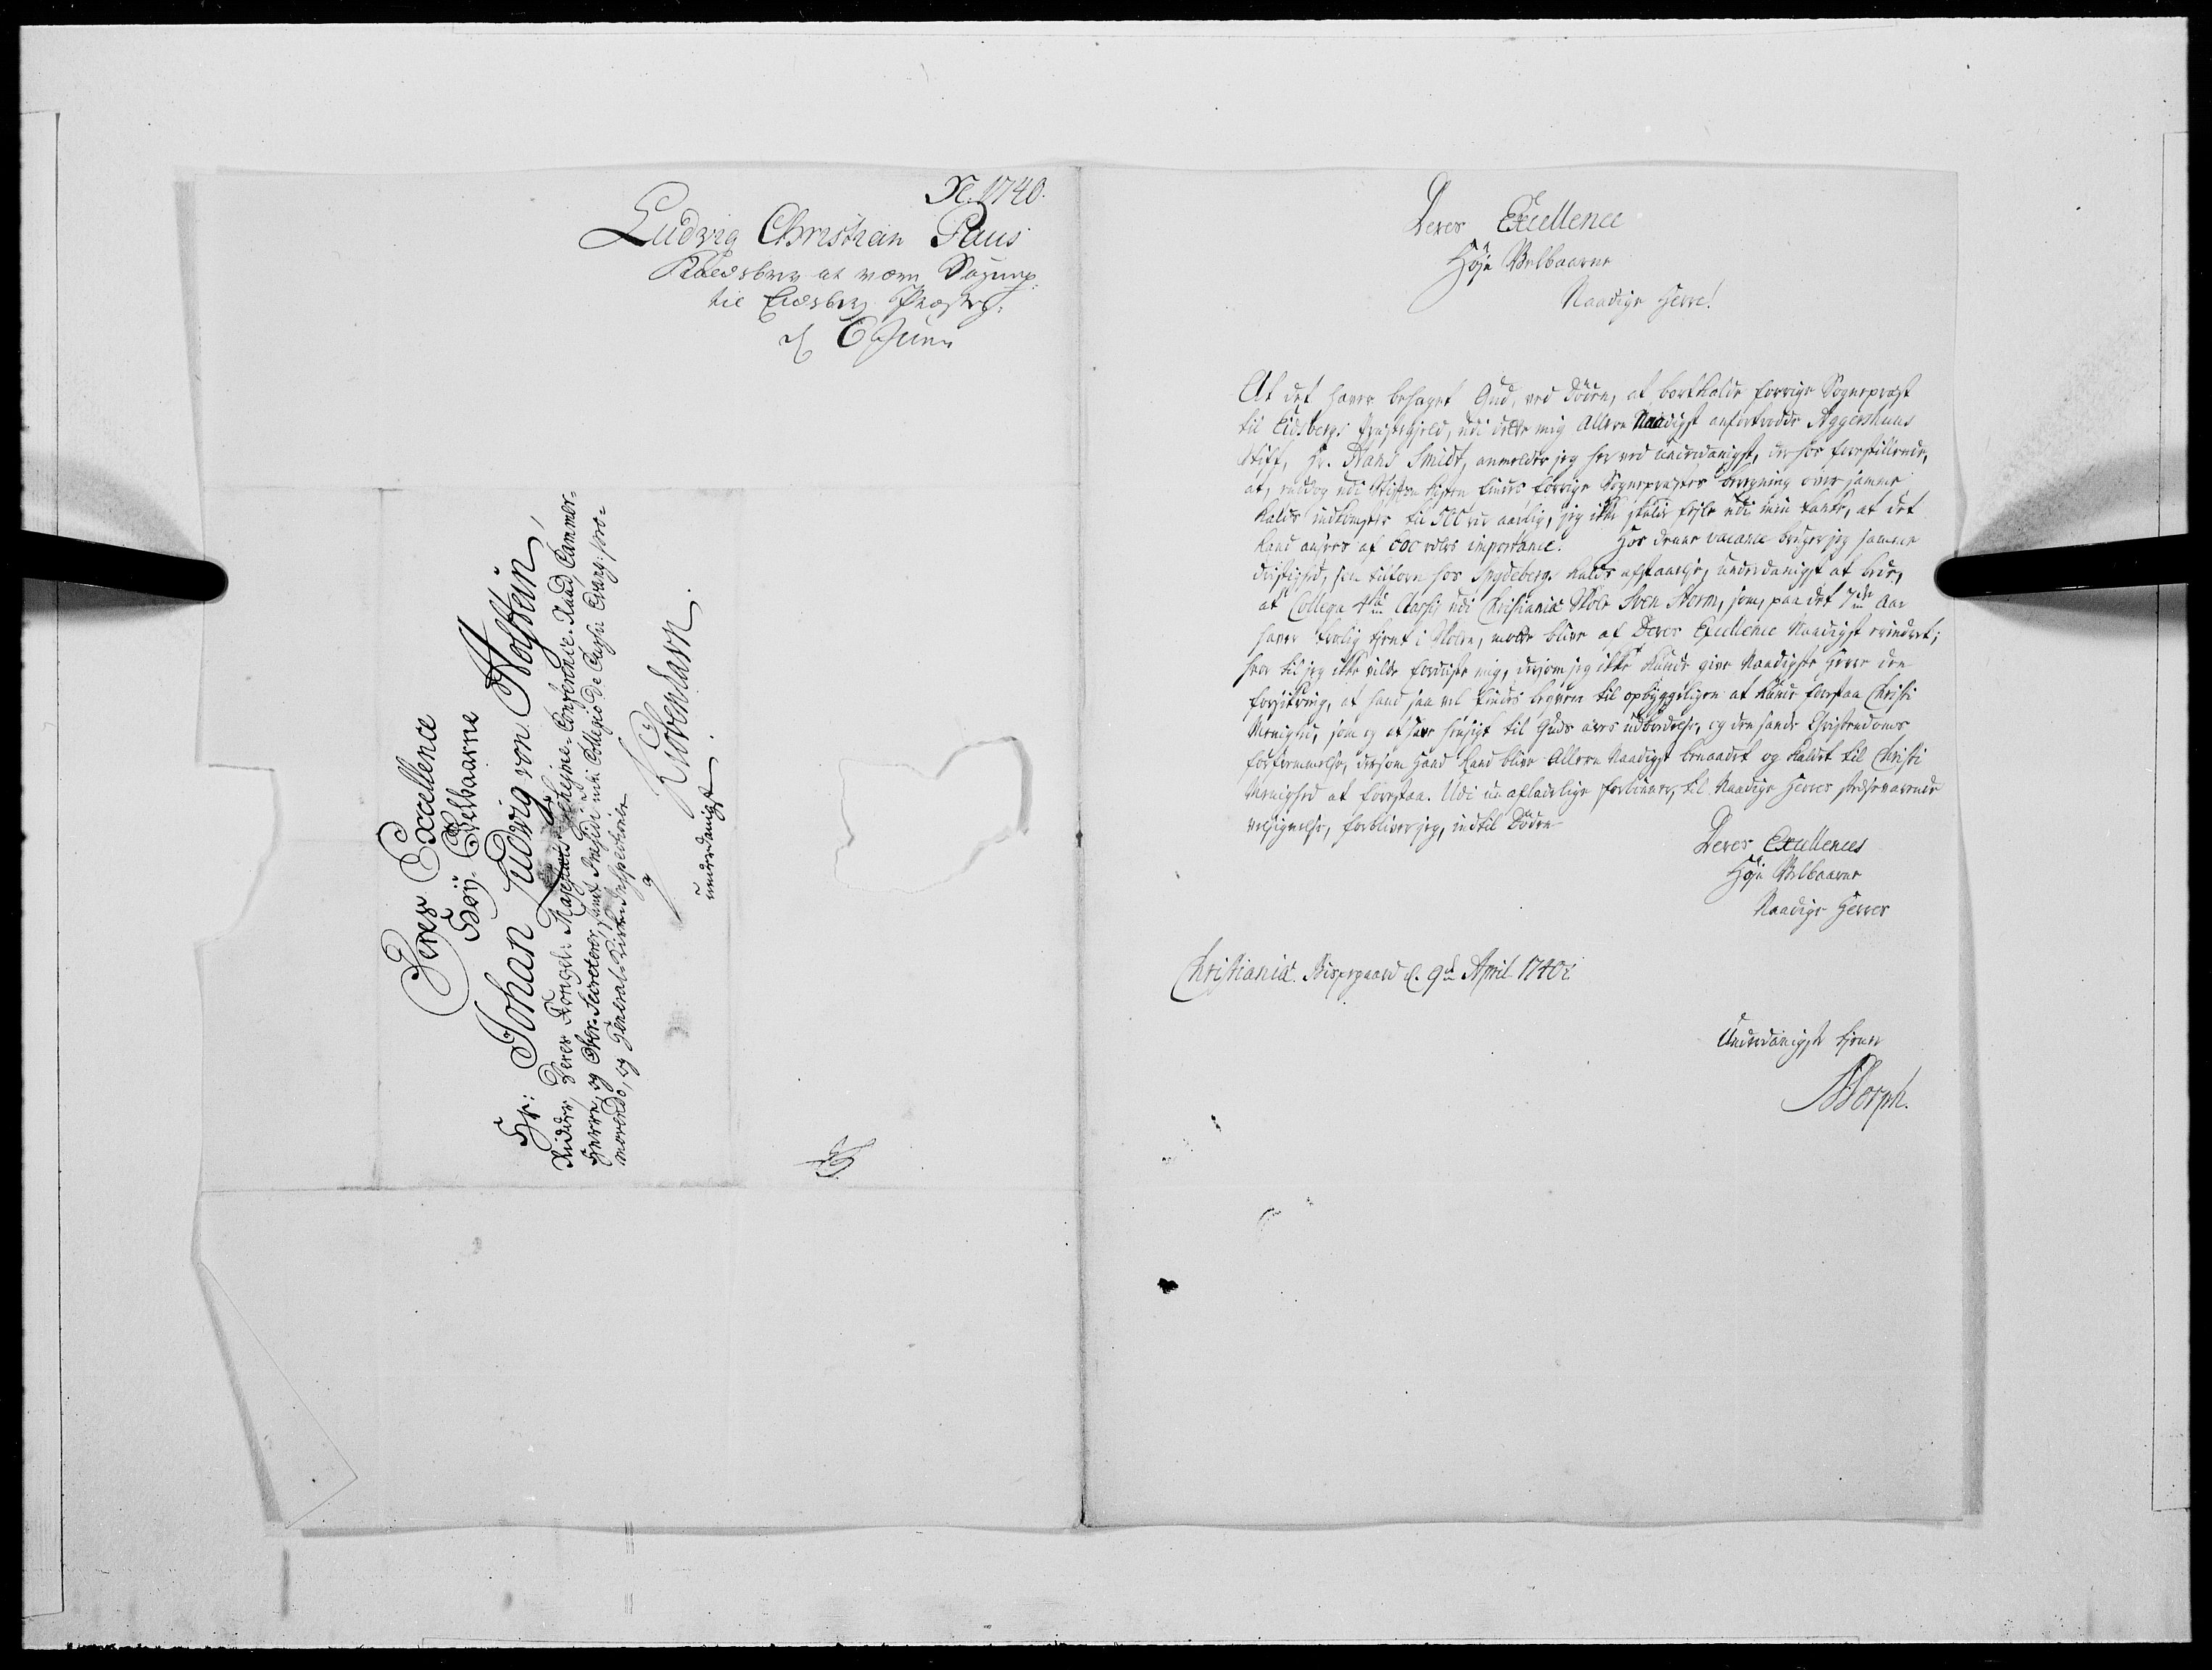 N. 1740.
Ludvig Christian Paus
Kaldsbrev at være Sogenp:
til Eidsberg Præsteg:
d 6 Juni
Deres Excellence
Høÿ-Velbaarne
Hr: Johan Ludvig von Holstein,
Ridder, Deres Kongel: Majestæts Geheyme-Conference-Raad, Cammer-
Herre, og Ober-Secreterer, samt Præsidi udi Collegio de Cursu Evang: pro-
movendo, og General-Kirke-Inspectionen
Kiøbenhavn.
underdanigst.
Deres Excellence
Høje Velbaarne
Naadige Herre!
At det haver behaget Gud, ved Døden, at bortkalde forrige Sognepræst
til Eidsbergs Præstegield, udi dette mig Allern Naadigst anfortroede Aggershuus
Stift, Hr. Hans Smidt, anmelder jeg her ved underdanigst, derhos forestillende,
at, endog udi Stiftets Kisten findes forrige Sognepræsters beregning over samme
Kalds indkomster til 500 rdr aarlig, jeg ikke skulde fejle udi min tanke, at det
kand ansees af 600 rdlrs importance. Hos denne vacance bruger jeg samme
dristighed, som tilforn hos Spydebergs Kalds afstaaelse, underdanigst at bede,
at Collega 4tæ Classis udi Christianiæ Skole Sven Storm, som, paa det 7de Aar
haver troelig tient i Skolen, motte blive af Deres Excellence Naadigst erindret;
hvor til jeg ikke vilde fordriste mig, dersom jeg ikke kunde give Naadigste Herre den
forsikring, at hand saa vel findes begvem til opbyggeligen at kunde forestaa Christi
Menighed, som og at have hensigt til Guds æres udbredelse, og den sande Christendoms
forfremmelse, dersom Hand kand blive Allern Naadigst benaadet og kaldet til Christi
Menighed at forestaa. Udi u-afladelige forbønner, til Naadige Herres stedsevarende
velsignelse, forbliver jeg, indtil Døden
Deres Excellences
Høje Velbaarne
Naadige Herres
Christiania Bispegaard d. 9de April 1740
Underdanigste tiener
Dorph.